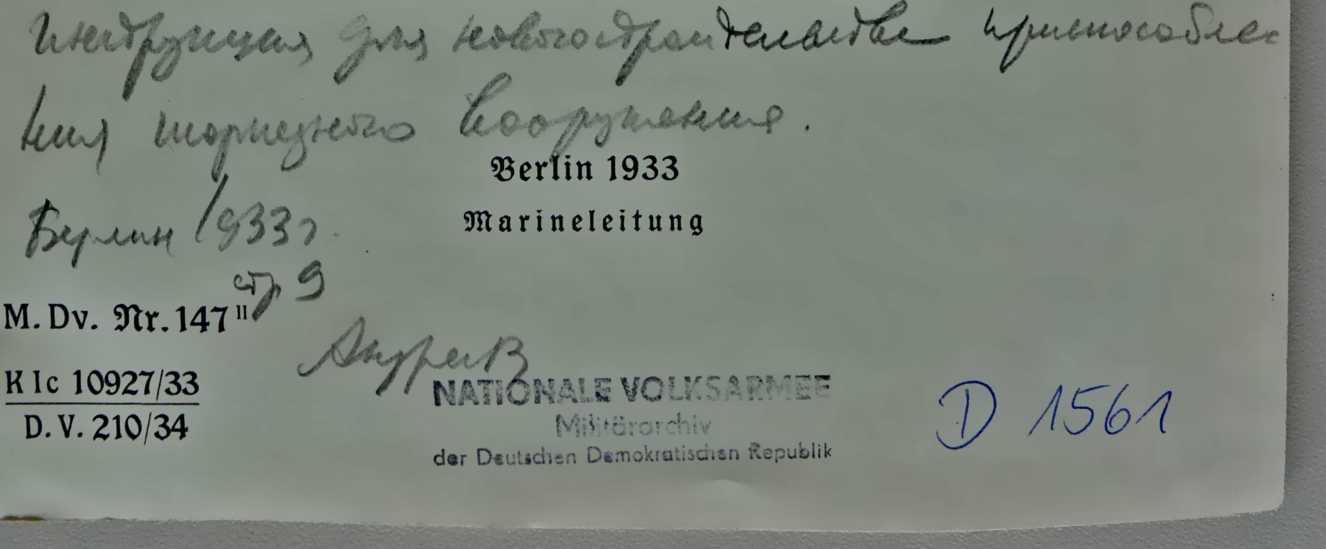 Инструкция для новостроительстве приспособле-
ния торпедного вооружения.
Berlin 1933
Marineleitung
Берлин 1933 г.
стр 9
M. Dv. Nr. 147 II
K Ic 10927/33
D. V. 210/34
NATIONALE VOLKSARMEE
Militärarchiv
der Deutschen Demokratischen Republik
D 1561